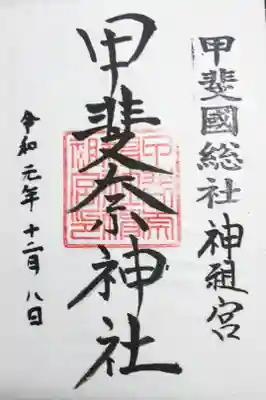 甲斐國総社 神祖宮
甲斐奈神社
令和元年十二月八日